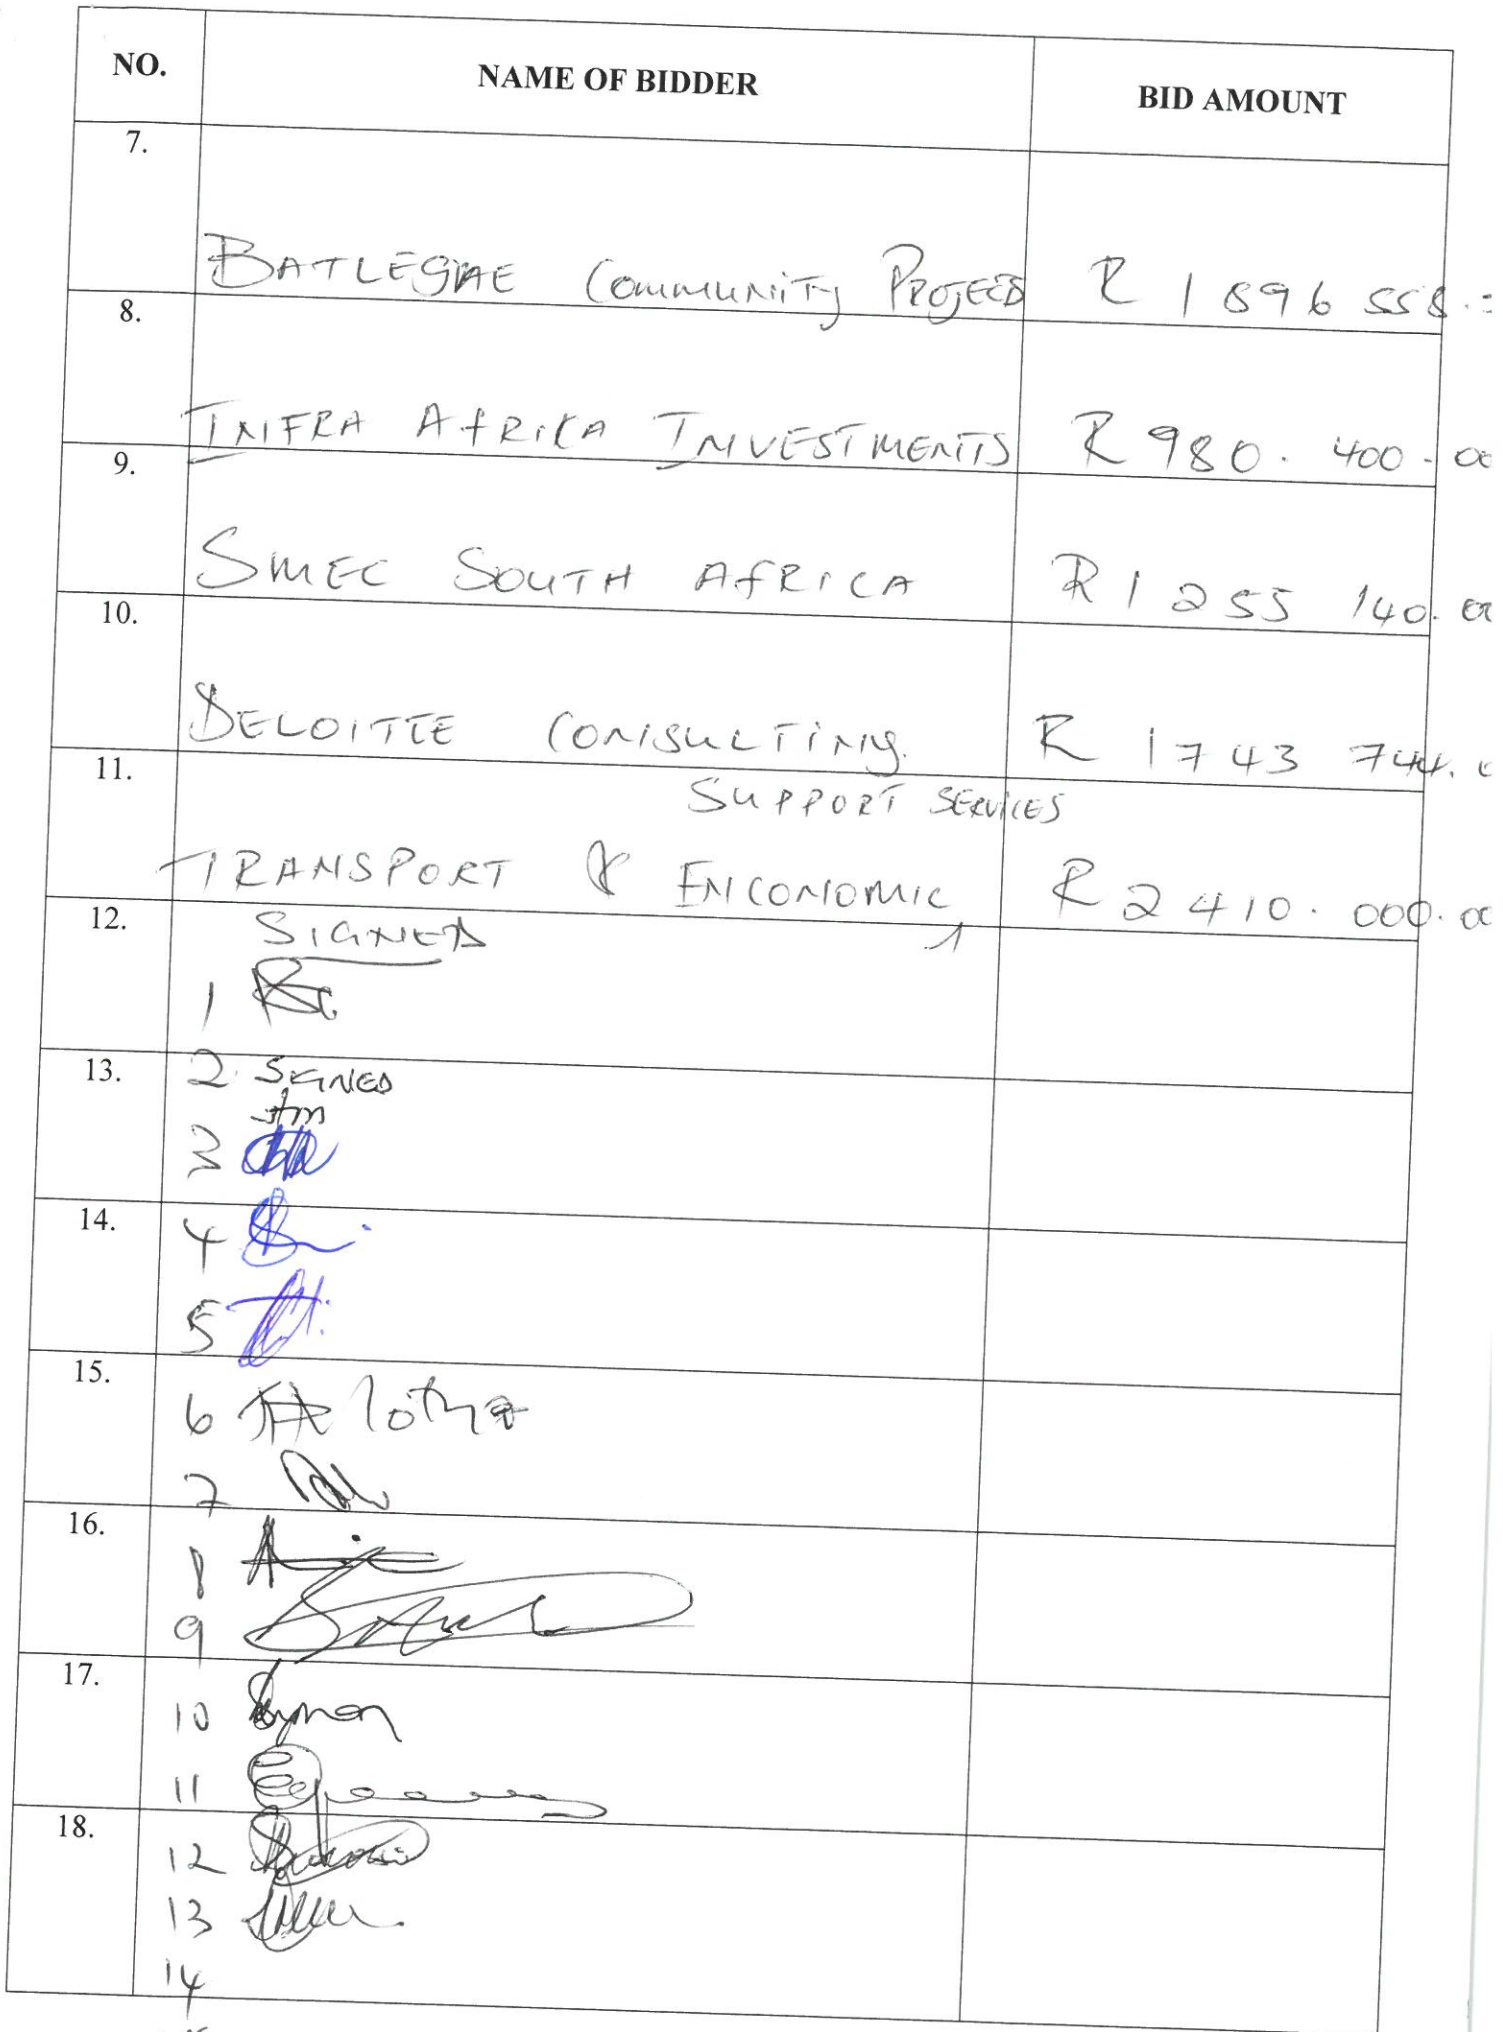 NO. NAME OF BIDDER BID AMOUNT
7.
BATLEGAE COMMUNITY PROJECTS R 1 896 558.
8.
INFRA AFRIKA INVESTMENTS R 980. 400.00
9.
SMEC SOUTH AFRICA R 1 255 140.00
10.
DELOITTE CONSULTING. R 1743 744.
11.
SUPPORT SERVICES
TRANSPORT & ENCONOMIC R 2 410. 000.00
12.
SIGNED
1
13.
2 SIGNED
3
14.
4
5
15.
6
7
16.
8
9
17.
10
11
18.
12
13
14